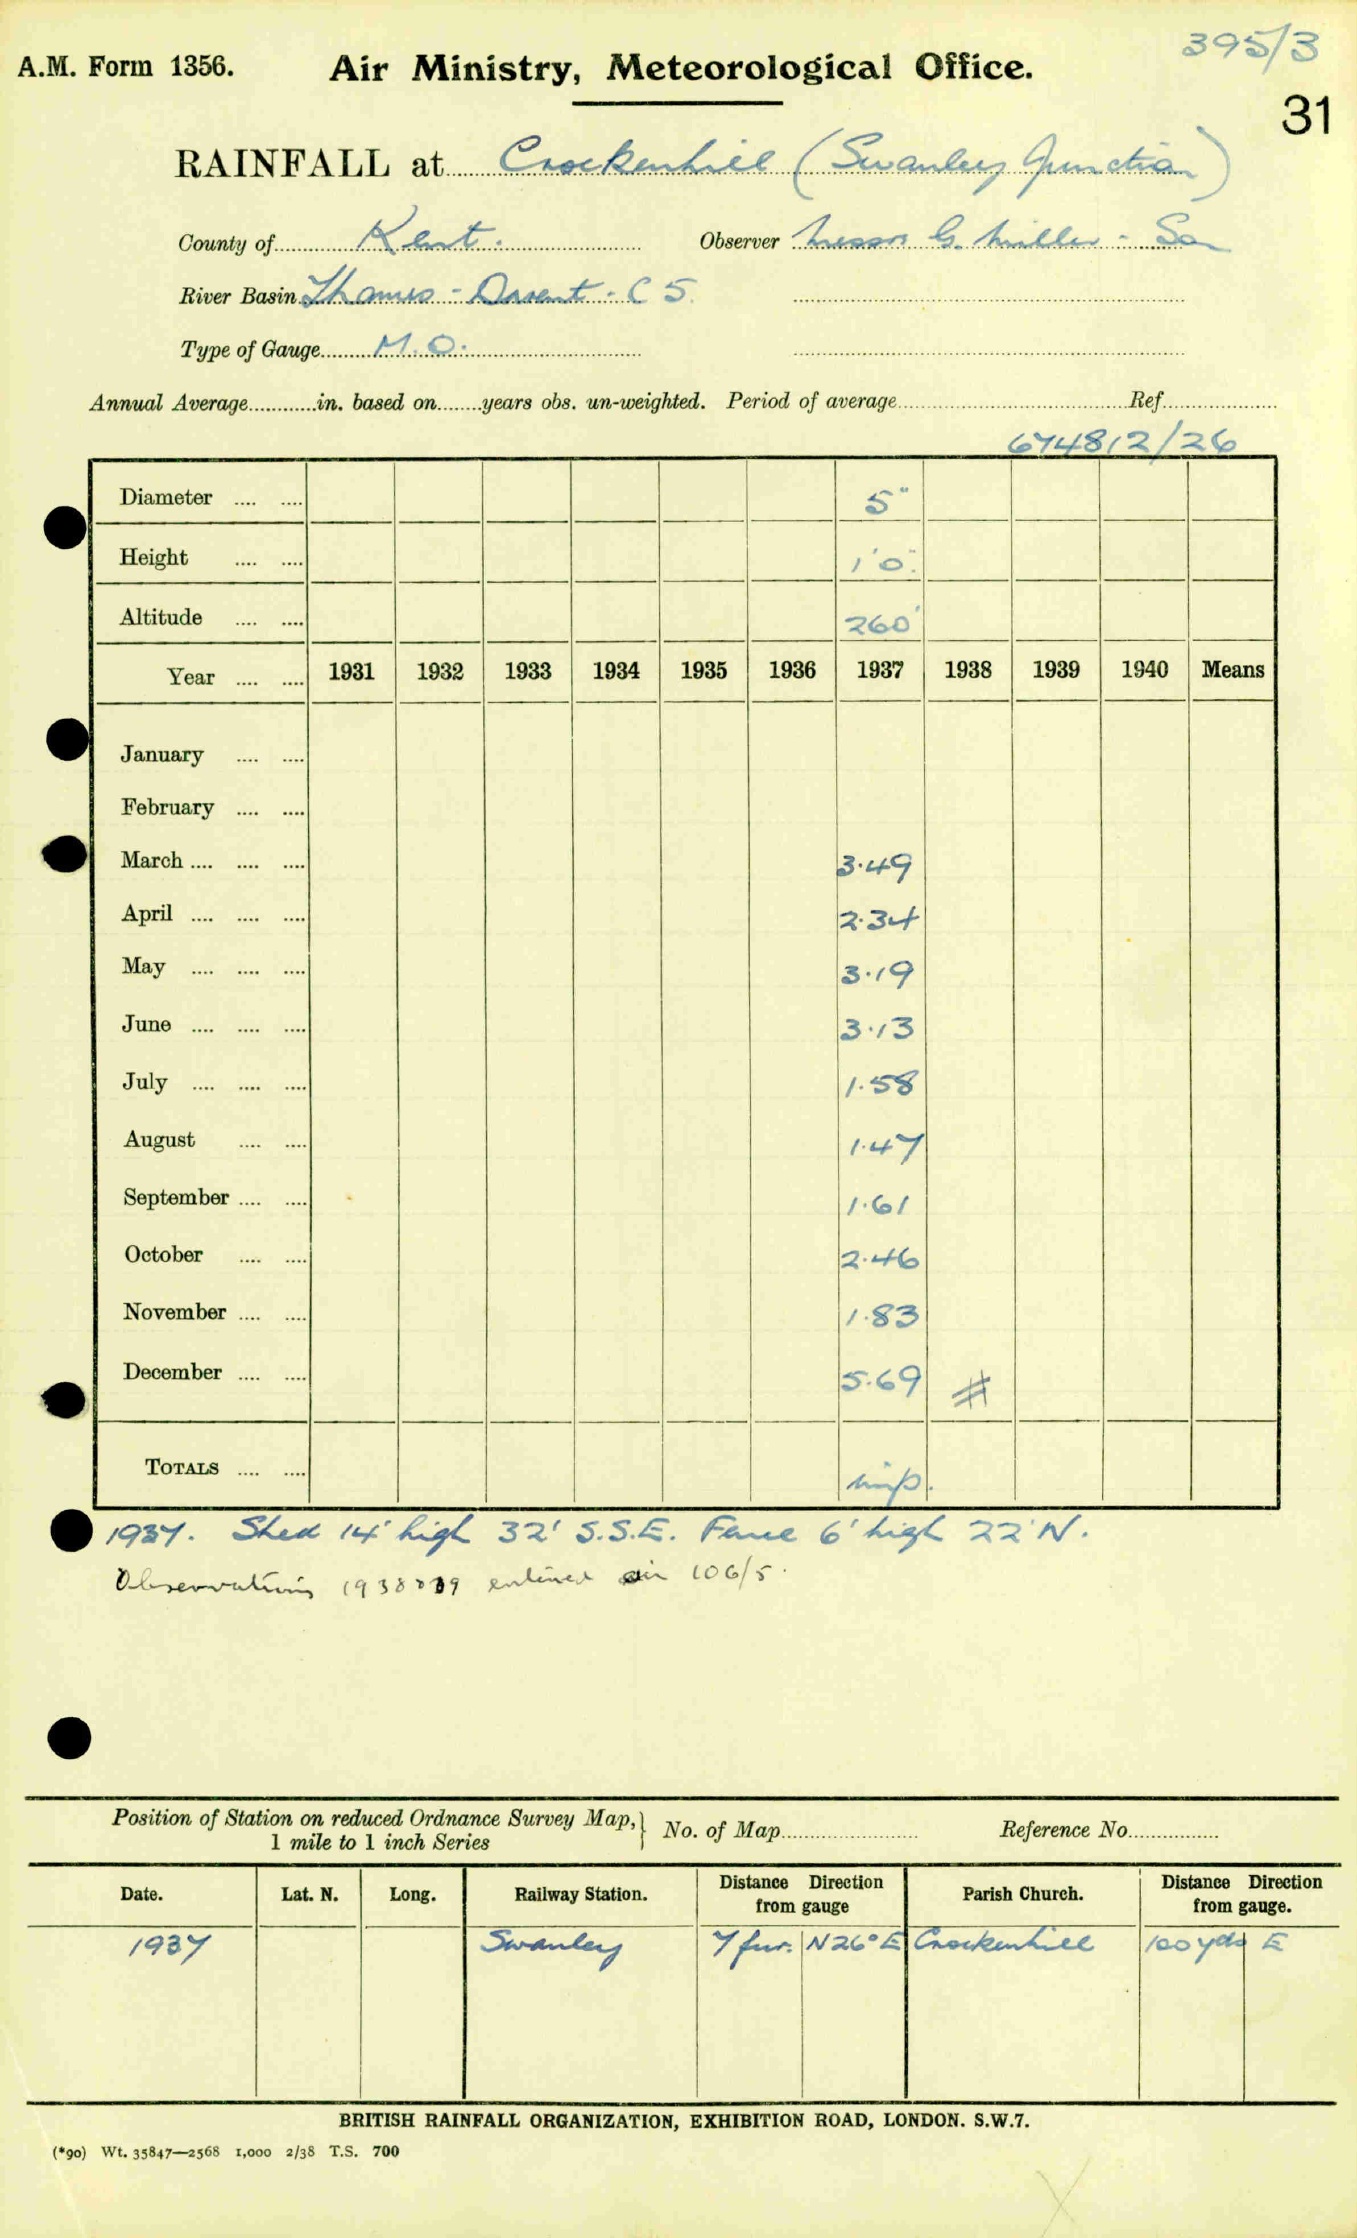 395/3
A.M. Form 1356. Air Ministry, Meteorological Office.
31
RAINFALL at Crockenhill (Swanley Junction)
County of Kent. Observer Messrs G. Miller - Son
River Basin Thames - Darent - C 5.
Type of Gauge M.O.
Annual Average in. based on years obs. un-weighted. Period of average Ref
674812/26
Diameter 5"
Height 1'0"
Altitude 260'
Year 1931 1932 1933 1934 1935 1936 1937 1938 1939 1940 Means
January
February
March 3.49
April 2.34
May 3.19
June 3.13
July 1.58
August 1.47
September 1.61
October 2.46
November 1.83
December 5.69 #
TOTALS imp.
1937. Shed 14' high 32' S.S.E. Fence 6' high 22' N.
Observations 1938 39 entered in 106/5.
Position of Station on reduced Ordnance Survey Map, } No. of Map Reference No.
1 mile to 1 inch Series
Date. Lat. N. Long. Railway Station. Distance Direction from gauge Parish Church. Distance Direction from gauge.
1937 Swanley 7 fur. N26°E Crockenhill 100 yds E
BRITISH RAINFALL ORGANIZATION, EXHIBITION ROAD, LONDON. S.W.7.
(*90) Wt. 35847—2568 1,000 2/38 T.S. 700